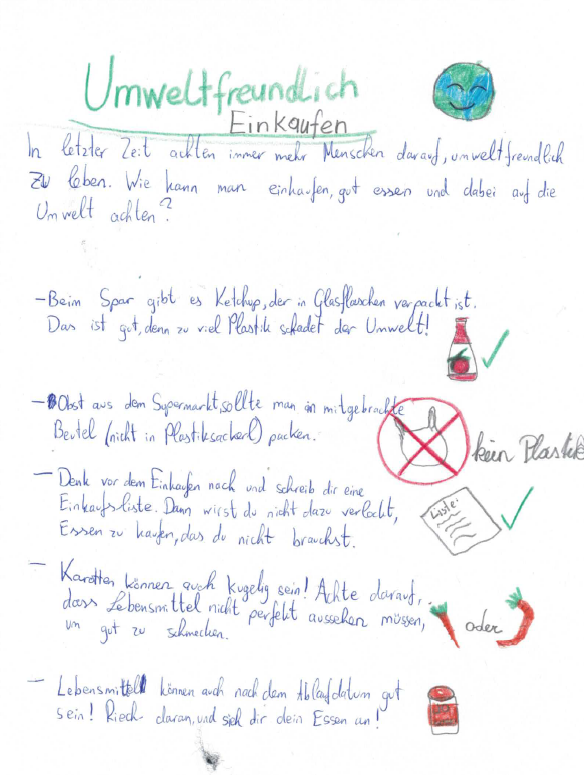 Umweltfreundlich
Einkaufen
In letzter Zeit achten immer mehr Menschen darauf, umweltfreundlich
zu leben. Wie kann man einkaufen, gut essen und dabei auf die
Umwelt achten?
- Beim Spar gibt es Ketchup, der in Glasflaschen verpackt ist.
Das ist gut, denn zu viel Plastik schadet der Umwelt!
- Obst aus dem Supermarkt, sollte man in mitgebrachte
Beutel (nicht in Plastiksackerl) packen.
kein Plastik
- Denk vor dem Einkaufen nach und schreib dir eine
Einkaufsliste. Dann wirst du nicht dazu verlockt,
Essen zu kaufen, das du nicht brauchst.
Liste:
- Karotten können auch kugelig sein! Achte darauf,
dass Lebensmittel nicht perfekt aussehen müssen,
um gut zu schmecken.
oder
- Lebensmittel können auch nach dem Ablaufdatum gut
sein! Riech daran, und sieh dir dein Essen an!